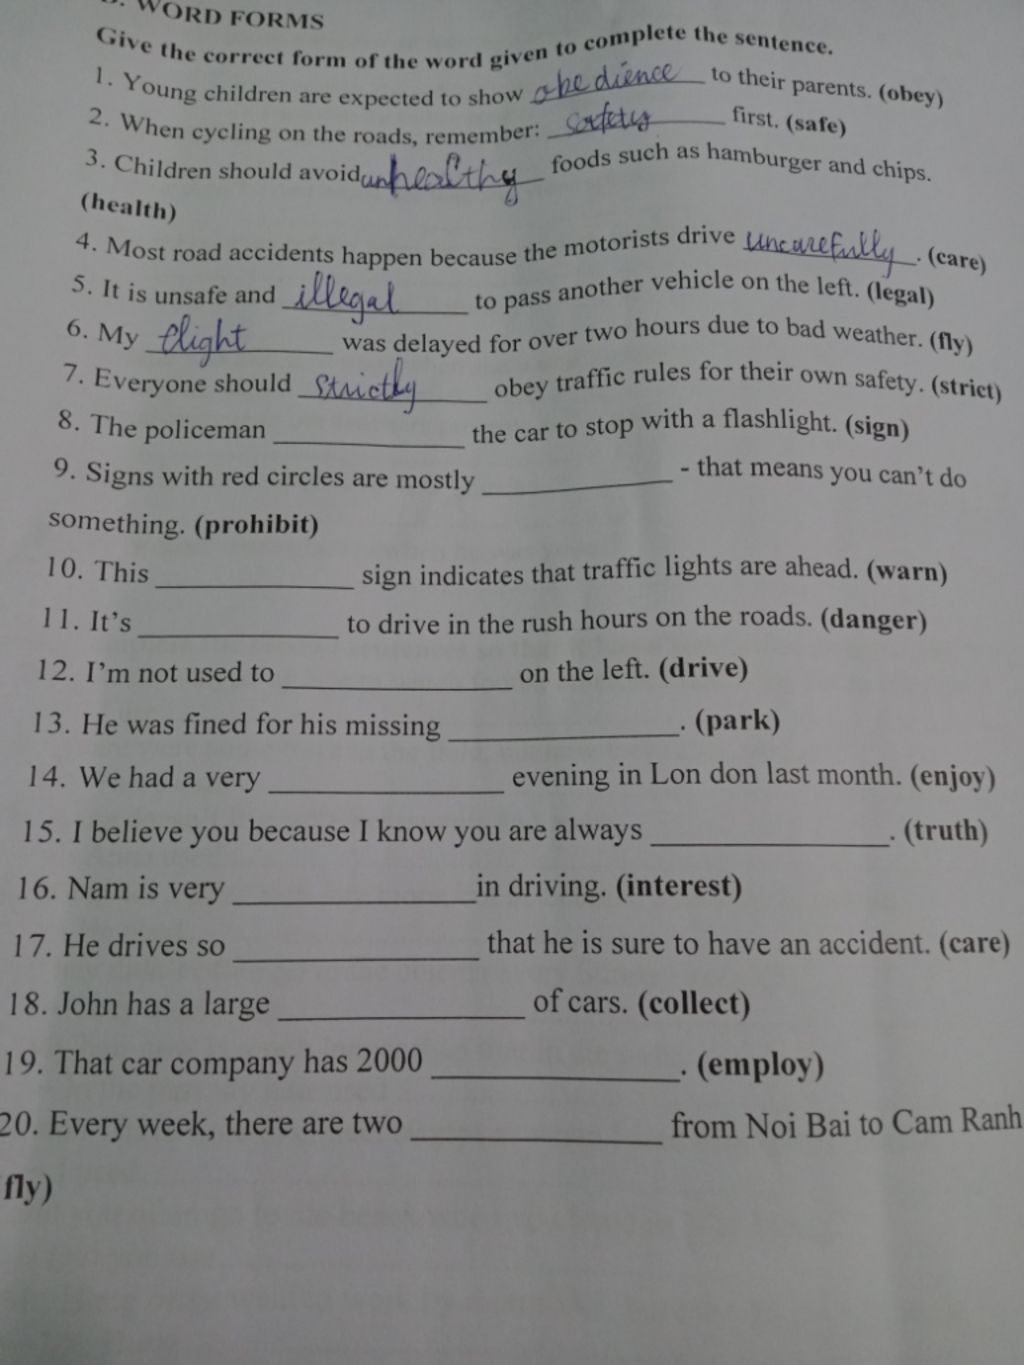 WORD FORMS
Give the correct form of the word given to complete the sentence.
1. Young children are expected to show obedience to their parents. (obey)
2. When cycling on the roads, remember: safety first. (safe)
3. Children should avoid unhealthy foods such as hamburger and chips.
(health)
4. Most road accidents happen because the motorists drive uncarefully. (care)
5. It is unsafe and illegal to pass another vehicle on the left. (legal)
6. My flight was delayed for over two hours due to bad weather. (fly)
7. Everyone should strictly obey traffic rules for their own safety. (strict)
8. The policeman ____________ the car to stop with a flashlight. (sign)
9. Signs with red circles are mostly ____________ - that means you can't do
something. (prohibit)
10. This ____________ sign indicates that traffic lights are ahead. (warn)
11. It's ____________ to drive in the rush hours on the roads. (danger)
12. I'm not used to ____________ on the left. (drive)
13. He was fined for his missing ____________. (park)
14. We had a very ____________ evening in Lon don last month. (enjoy)
15. I believe you because I know you are always ____________. (truth)
16. Nam is very ____________ in driving. (interest)
17. He drives so ____________ that he is sure to have an accident. (care)
18. John has a large ____________ of cars. (collect)
19. That car company has 2000 ____________. (employ)
20. Every week, there are two ____________ from Noi Bai to Cam Ranh
fly)